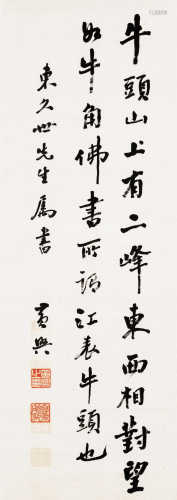 牛頭山上有二峰東西相對望
如牛角佛書所謂江表牛頭也
東久世先生属書
黃興